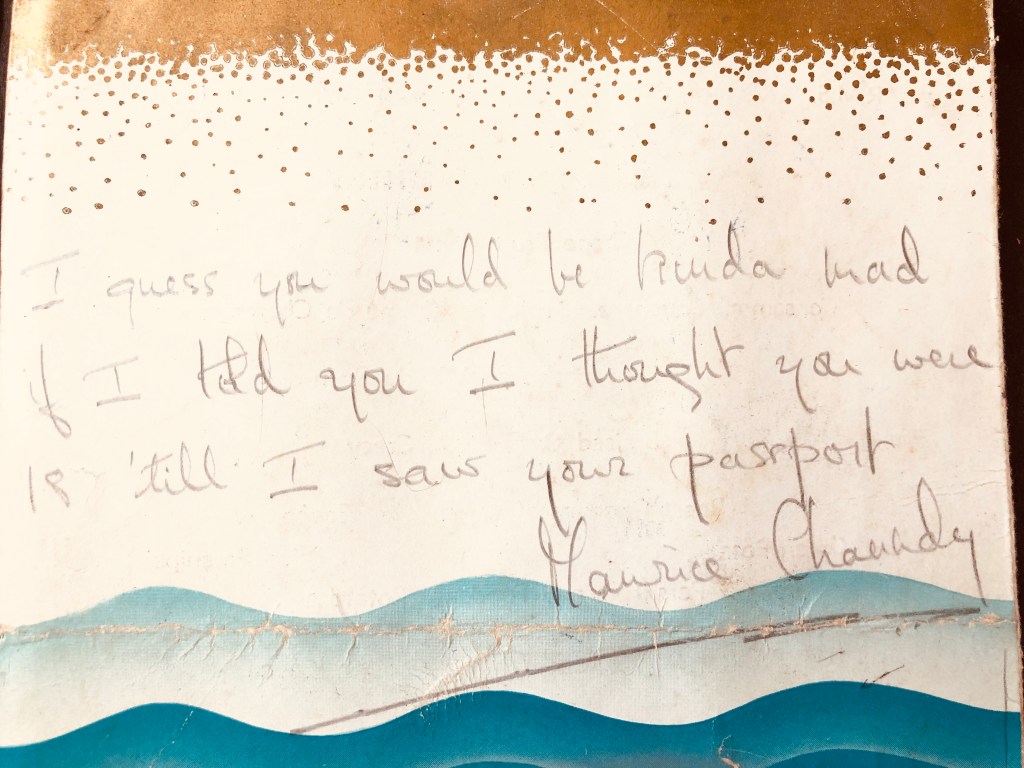 I guess you would be kinda mad
if I told you I thought you were
18 'till I saw your passport
Maurice Chaundy